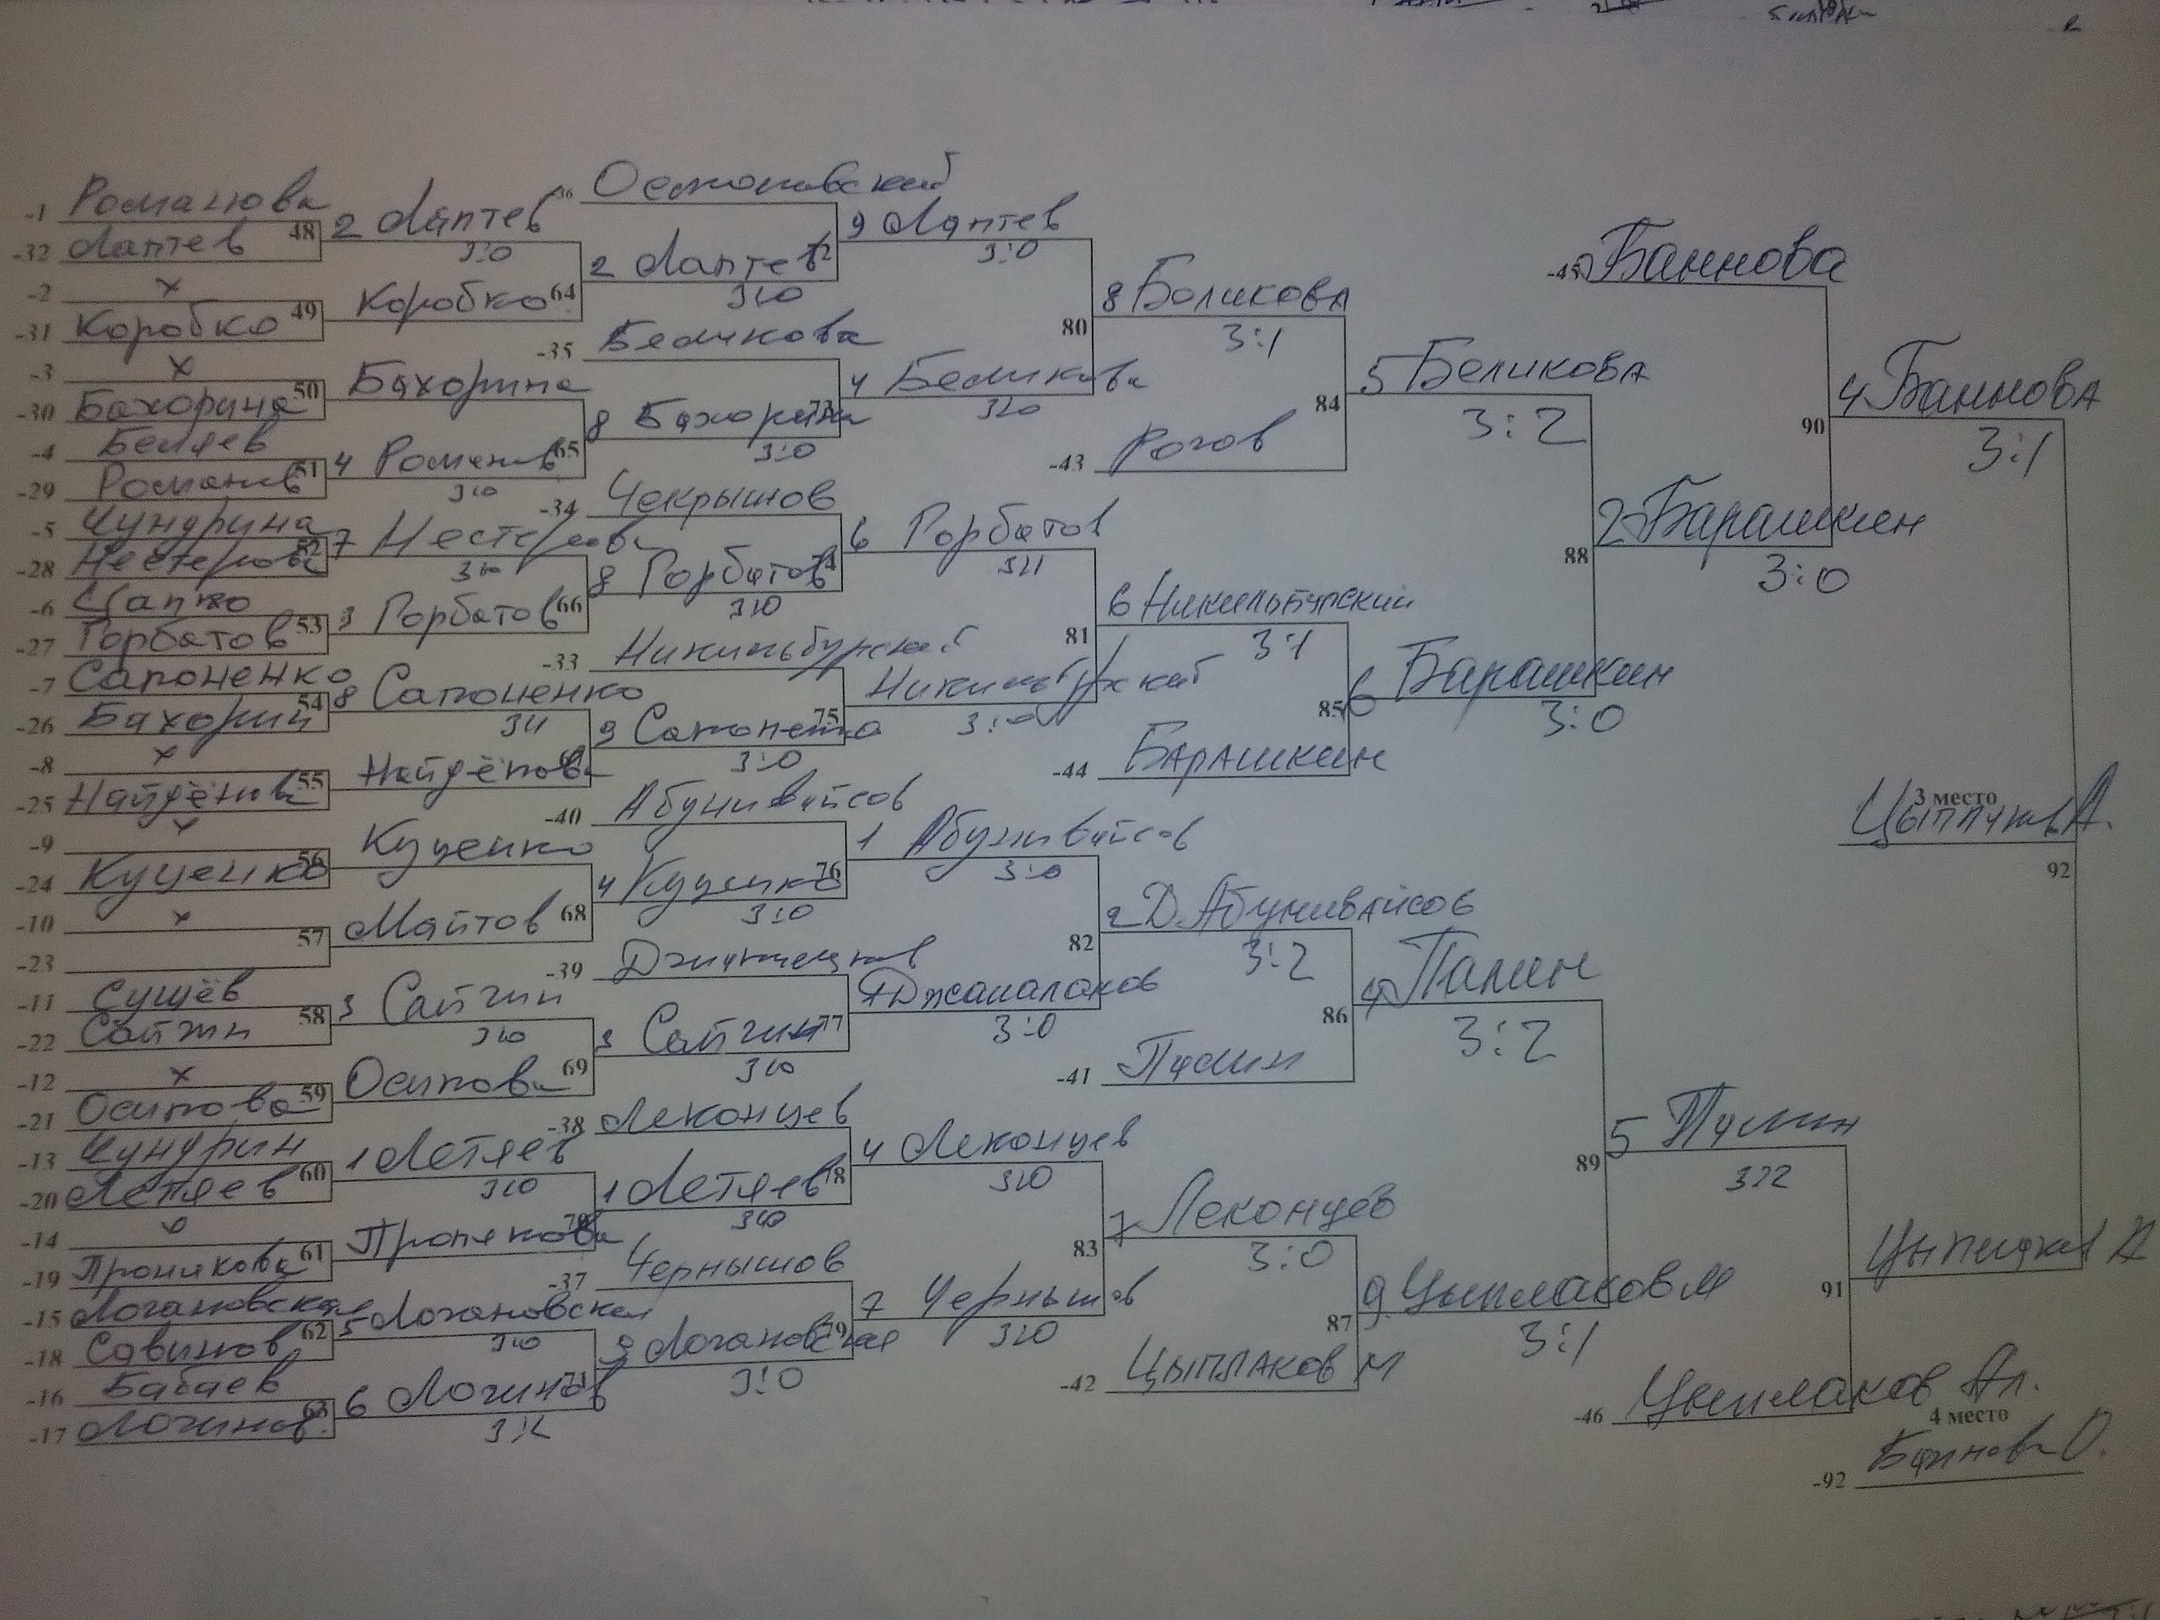 -1 Романова
-32 Лаптев
48
-2 x
-31 Коробко
49
-3 x
-30 Бахорина
50
-4 Беляев
-29 Романов
51
-5 Чундрина
-28 Нестерова
52
-6 Цапко
-27 Горбатов
53
-7 Сапоненко
-26 Бахорин
54
-8 x
-25 Найдёнова
55
-9 x
-24 Куценко
56
-10 x
-23
57
-11 Сущёв
-22 Сайгин
58
-12 x
-21 Осипова
59
-13 Чундрин
-20 Летяев
60
-14 x
-19 Пронякова
61
-15 Логановская
-18 Савинов
62
-16 Бабаев
-17 Логинов
63
2 Лаптев
3:0
Коробко 64
Бахорина
4 Романов 65
3:0
7 Нестерова
3:0
3 Горбатов 66
8 Сапоненко
3:1
Найдёнова
Куценко
Майтов 68
3 Сайгин
3:0
Осипова 69
1 Летяев
3:0
Пронякова 70
5 Логановская
3:0
6 Логинов 71
3:2
-36 Осмоловский
2 Лаптев 72
3:0
-35 Беликова
8 Бахорина 73
3:0
-34 Чекрышов
8 Горбатов 74
3:0
-33 Никильбурский
9 Сапоненко 75
3:0
-40 Абунивайсов
4 Куценко 76
3:0
-39
3 Сайгин 77
3:0
-38 Леконцев
1 Летяев 78
3:0
-37 Чернышов
9 Логановская 79
3:0
9 Лаптев
3:0
4 Беликова
3:0
80
6 Горбатов
3:1
Никильбурский
3:0
81
1 Абунивайсов
3:0
Джамалаков
3:0
82
4 Леконцев
3:0
7 Чернышов
3:0
83
8 Беликова
3:1
-43 Рогов
84
6 Никильбурский
3:1
-44 Барашкин
85
2 Д. Абунивайсов
3:2
-41 Палин
86
7 Леконцев
3:0
-42 Цыплаков М
87
5 Беликова
3:2
6 Барашкин
3:0
88
4 Палин
3:2
9 Цыплаков М
3:1
89
-45 Баннова
2 Барашкин
3:0
90
5 Палин
3:2
-46 Цыплаков Ал.
91
4 Баннова
3:1
Цыплаков А
3 место
Цыплаков А.
92
4 место
-92 Баннова О.